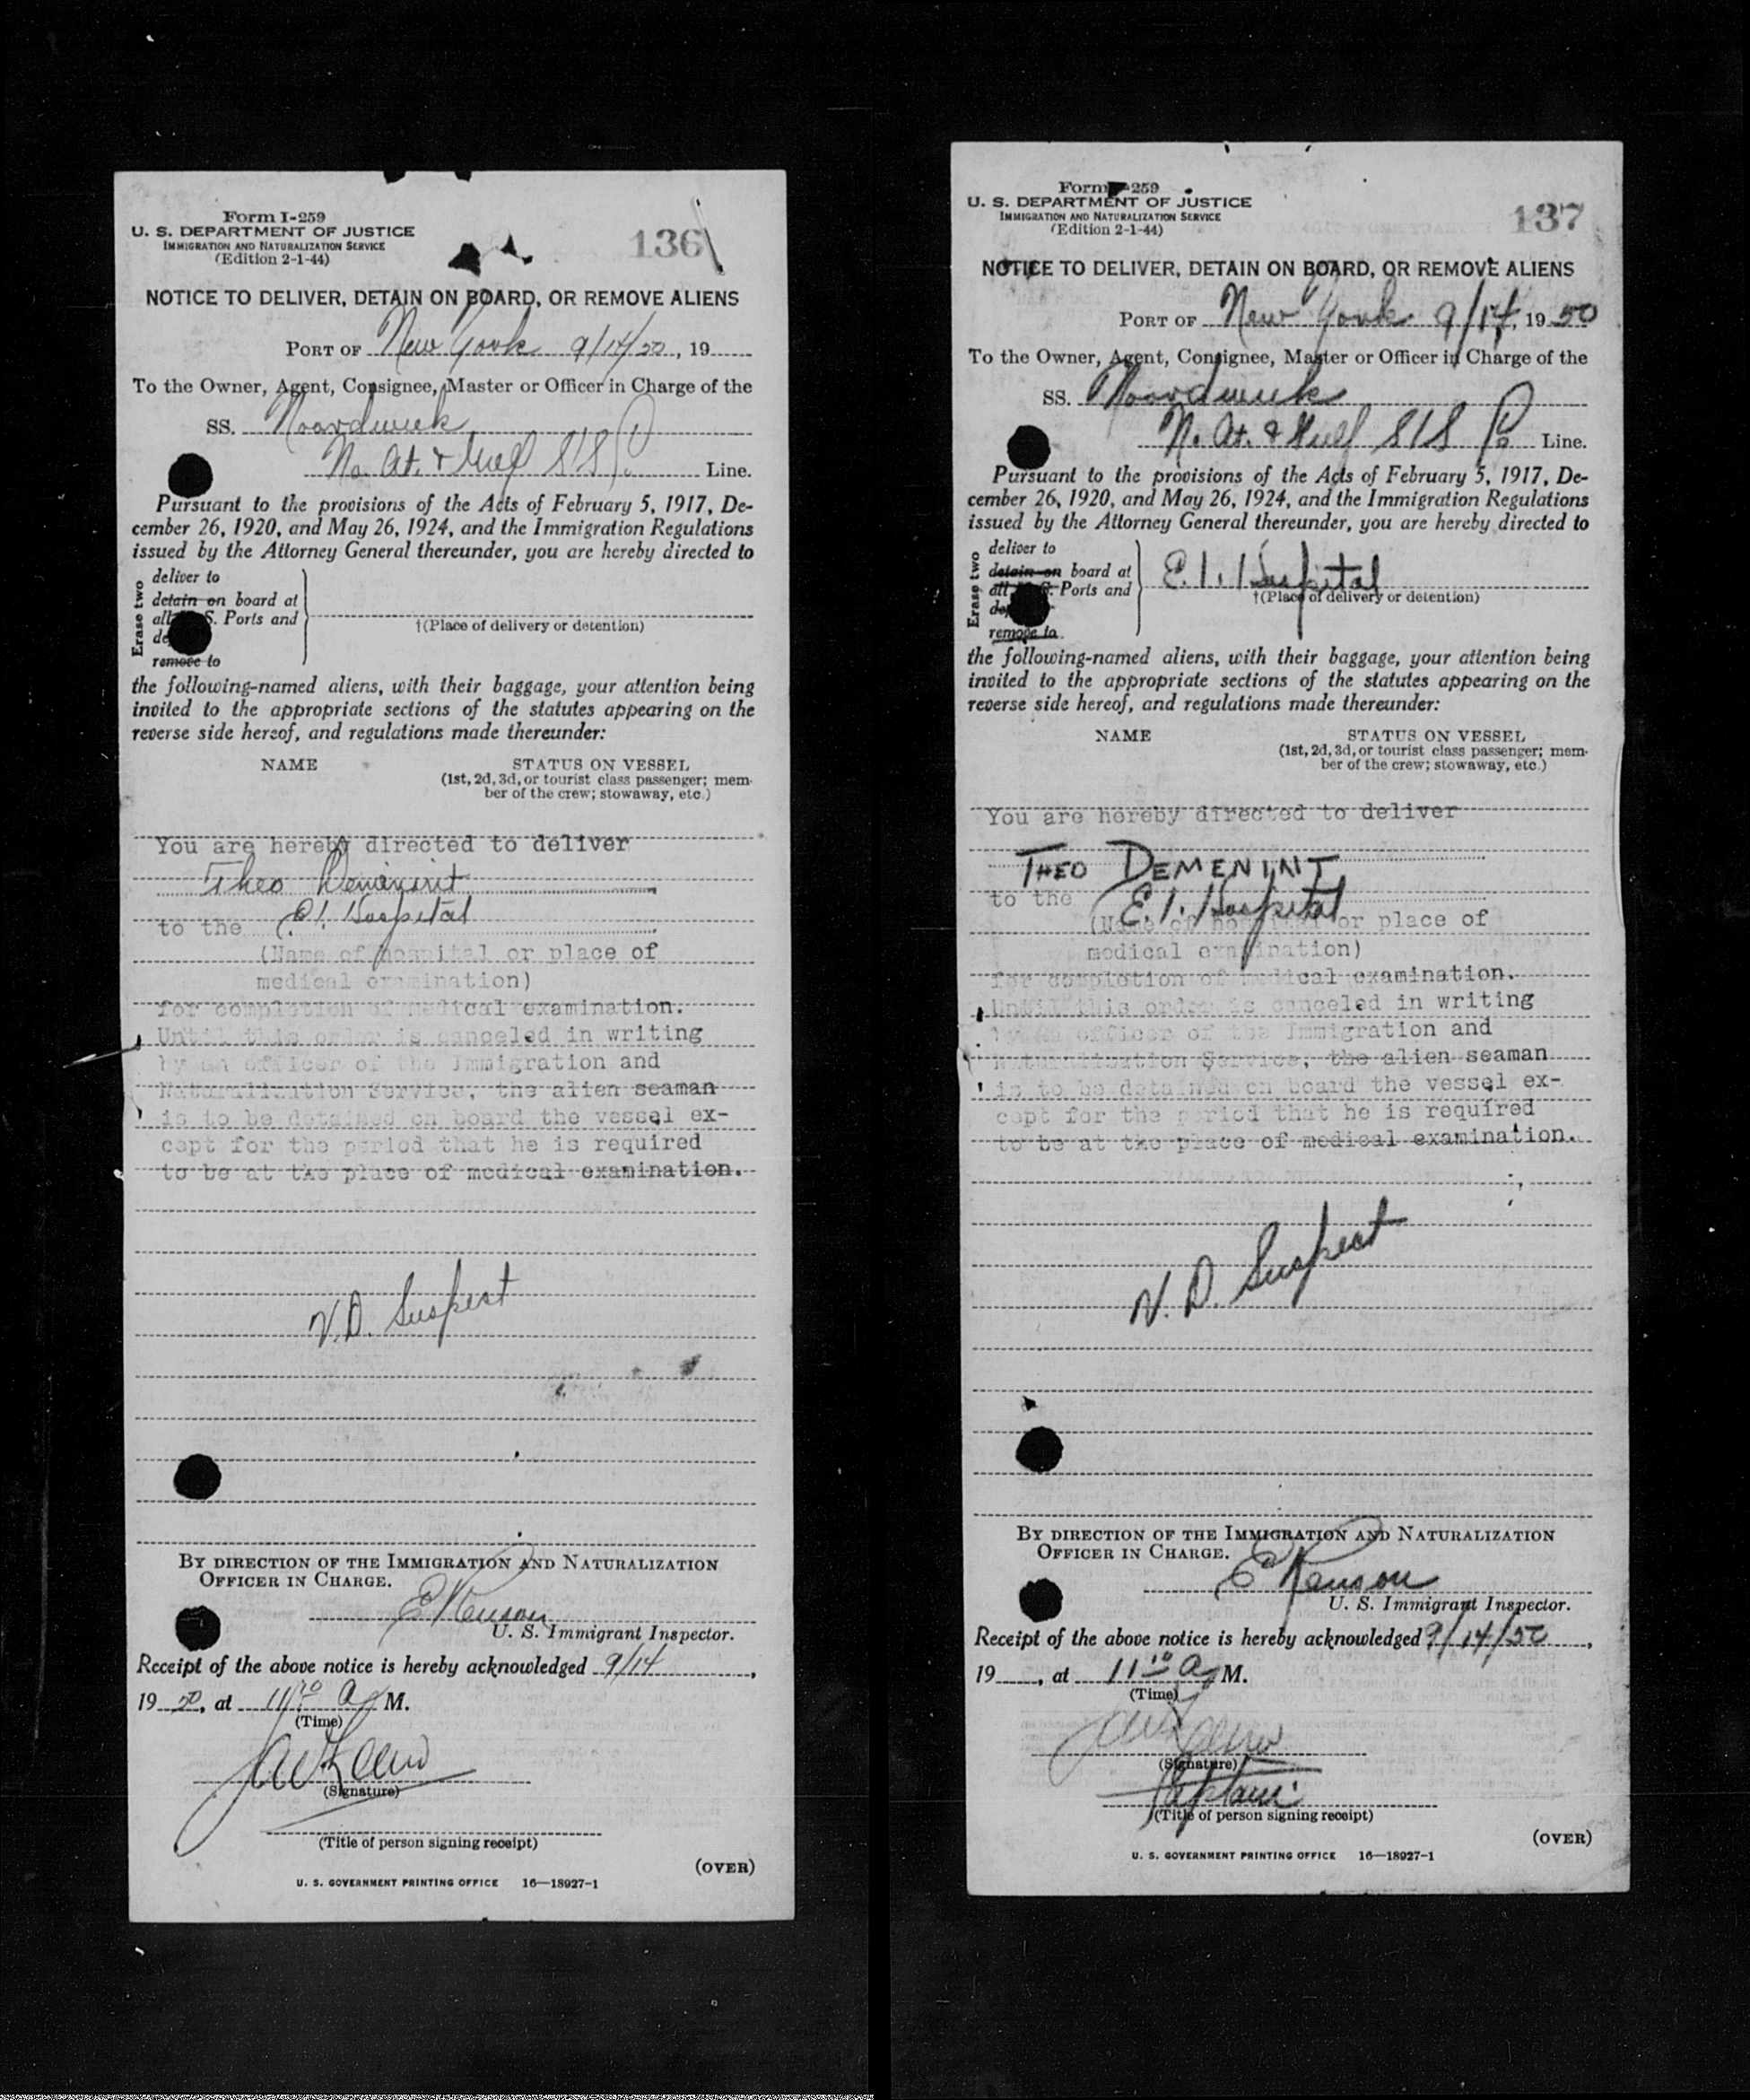 Form I-259
U. S. DEPARTMENT OF JUSTICE
IMMIGRATION AND NATURALIZATION SERVICE
(Edition 2-1-44)
136
NOTICE TO DELIVER, DETAIN ON BOARD, OR REMOVE ALIENS
PORT OF New York 9/14/50, 19
To the Owner, Agent, Consignee, Master or Officer in Charge of the
SS. Noordwijk
No. At. & Gulf S/S Co Line.
Pursuant to the provisions of the Acts of February 5, 1917, De-
cember 26, 1920, and May 26, 1924, and the Immigration Regulations
issued by the Attorney General thereunder, you are hereby directed to
Erase two
deliver to
detain on board at
all S. Ports and
de
remove to
†(Place of delivery or detention)
the following-named aliens, with their baggage, your attention being
invited to the appropriate sections of the statutes appearing on the
reverse side hereof, and regulations made thereunder:
NAME STATUS ON VESSEL
(1st, 2d, 3d, or tourist class passenger; mem-
ber of the crew; stowaway, etc.)
You are hereby directed to deliver
Theo Demenint
to the E.I. Hospital
(Name of hospital or place of
medical examination)
for completion of medical examination.
Until this order is canceled in writing
by an officer of the Immigration and
Naturalization Service, the alien seaman
is to be detained on board the vessel ex-
cept for the period that he is required
to be at the place of medical examination.
V.D. Suspect
BY DIRECTION OF THE IMMIGRATION AND NATURALIZATION
OFFICER IN CHARGE.
U. S. Immigrant Inspector.
Receipt of the above notice is hereby acknowledged 9/14,
19 50, at 11 10 A M.
(Time)
(Signature)
(Title of person signing receipt)
(OVER)
U. S. GOVERNMENT PRINTING OFFICE 16—18927-1
Form -259
U. S. DEPARTMENT OF JUSTICE
IMMIGRATION AND NATURALIZATION SERVICE
(Edition 2-1-44)
137
NOTICE TO DELIVER, DETAIN ON BOARD, OR REMOVE ALIENS
PORT OF New York 9/14, 19 50
To the Owner, Agent, Consignee, Master or Officer in Charge of the
SS. Noordwijk
N. At. & Gulf S/S Co Line.
Pursuant to the provisions of the Acts of February 5, 1917, De-
cember 26, 1920, and May 26, 1924, and the Immigration Regulations
issued by the Attorney General thereunder, you are hereby directed to
Erase two
deliver to
detain on board at
all S. Ports and
de
remove to
E.I. Hospital
†(Place of delivery or detention)
the following-named aliens, with their baggage, your attention being
invited to the appropriate sections of the statutes appearing on the
reverse side hereof, and regulations made thereunder:
NAME STATUS ON VESSEL
(1st, 2d, 3d, or tourist class passenger; mem-
ber of the crew; stowaway, etc.)
You are hereby directed to deliver
THEO DEMENINT
to the E.I. Hospital
(Name of hospital or place of
medical examination)
for completion of medical examination.
Until this order is canceled in writing
by an officer of the Immigration and
Naturalization Service, the alien seaman
is to be detained on board the vessel ex-
cept for the period that he is required
to be at the place of medical examination.
V.D. Suspect
BY DIRECTION OF THE IMMIGRATION AND NATURALIZATION
OFFICER IN CHARGE.
U. S. Immigrant Inspector.
Receipt of the above notice is hereby acknowledged 9/14/50,
19, at 11 10 A M.
(Time)
(Signature)
Captain
(Title of person signing receipt)
(OVER)
U. S. GOVERNMENT PRINTING OFFICE 16—18927-1